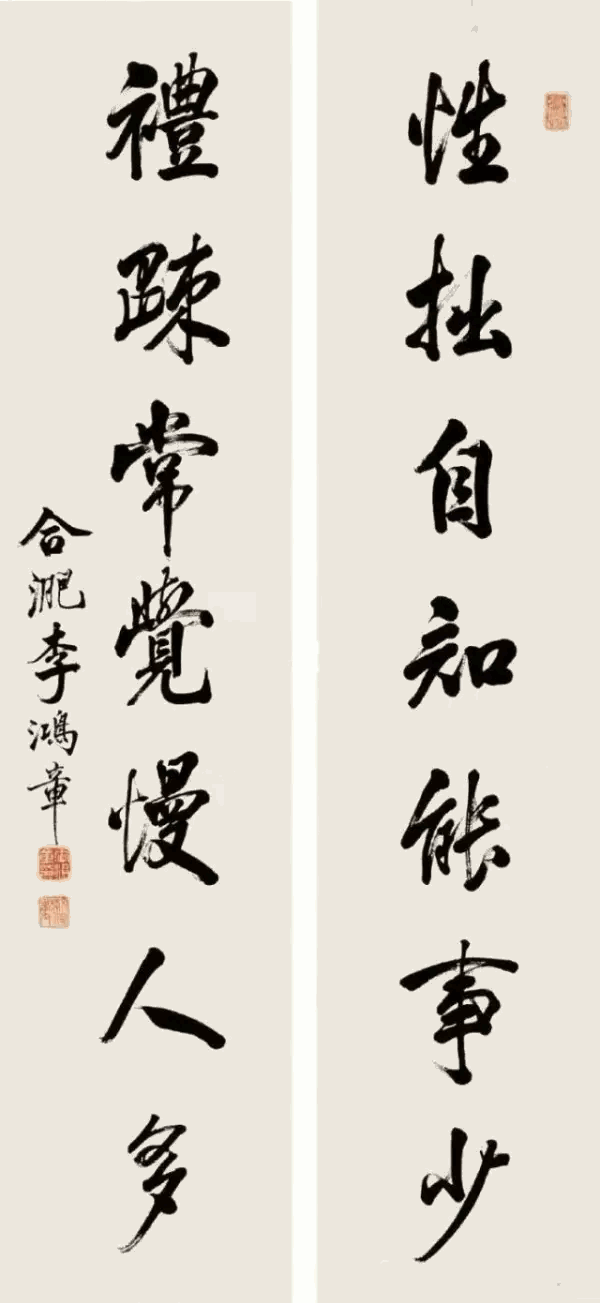 性拙自知能事少
禮踈常覺慢人多
合淝李鴻章